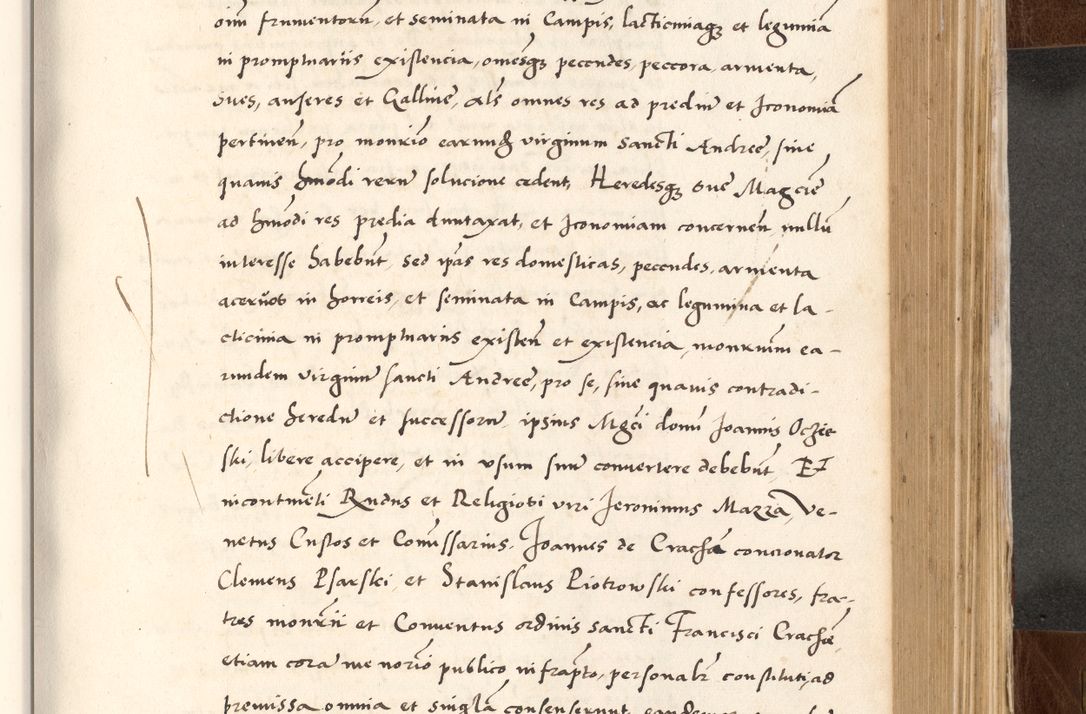 oim frumentorū, et seminata in Campis, lacticiniaqꝫ et legumina
in promptuariis existencia, omēsqꝫ pecudes, peccora, armenta,
Sues, anseres et Galline, als omnes res ad prediū et Iconomiā
pertineñ, pro monrio earundē virginum Sancti Andree, sine
quavis hmōdi rerū solucione cedent, Heredesqꝫ sue Magcie
ad hmōdi res predia duntaxat, et Iconomiam concerneñ, nullū
interesse habebūt, sed ipās res domesticas, pecudes, armenta
acervos in horreis, et seminata in Campis, ac legumina et la-
cticinia in promptuariis existeñ et existencia, monrium ea-
rundem virginū sancti Andree, pro se, sine quavis contradi-
ctione heredū et successorū, ipsius Mgci domi Joannis Oczie
ski, libere accipere, et in usum suū convertere debebūt. Et
incontinēti Rndus et Religiosi viri Jeronimus Mazza, Ve-
netus Custos et Comissarius, Joannes de Crachā concionator
Clemens Psarski, et Stanislaus Piotrowski confessores, fra-
tres monrii et Conventus ordinis sancti Francisci Crachē,
etiam corā me norio publico infrapto, personalr constituti, ad
premissa omnia et singula consenserunt